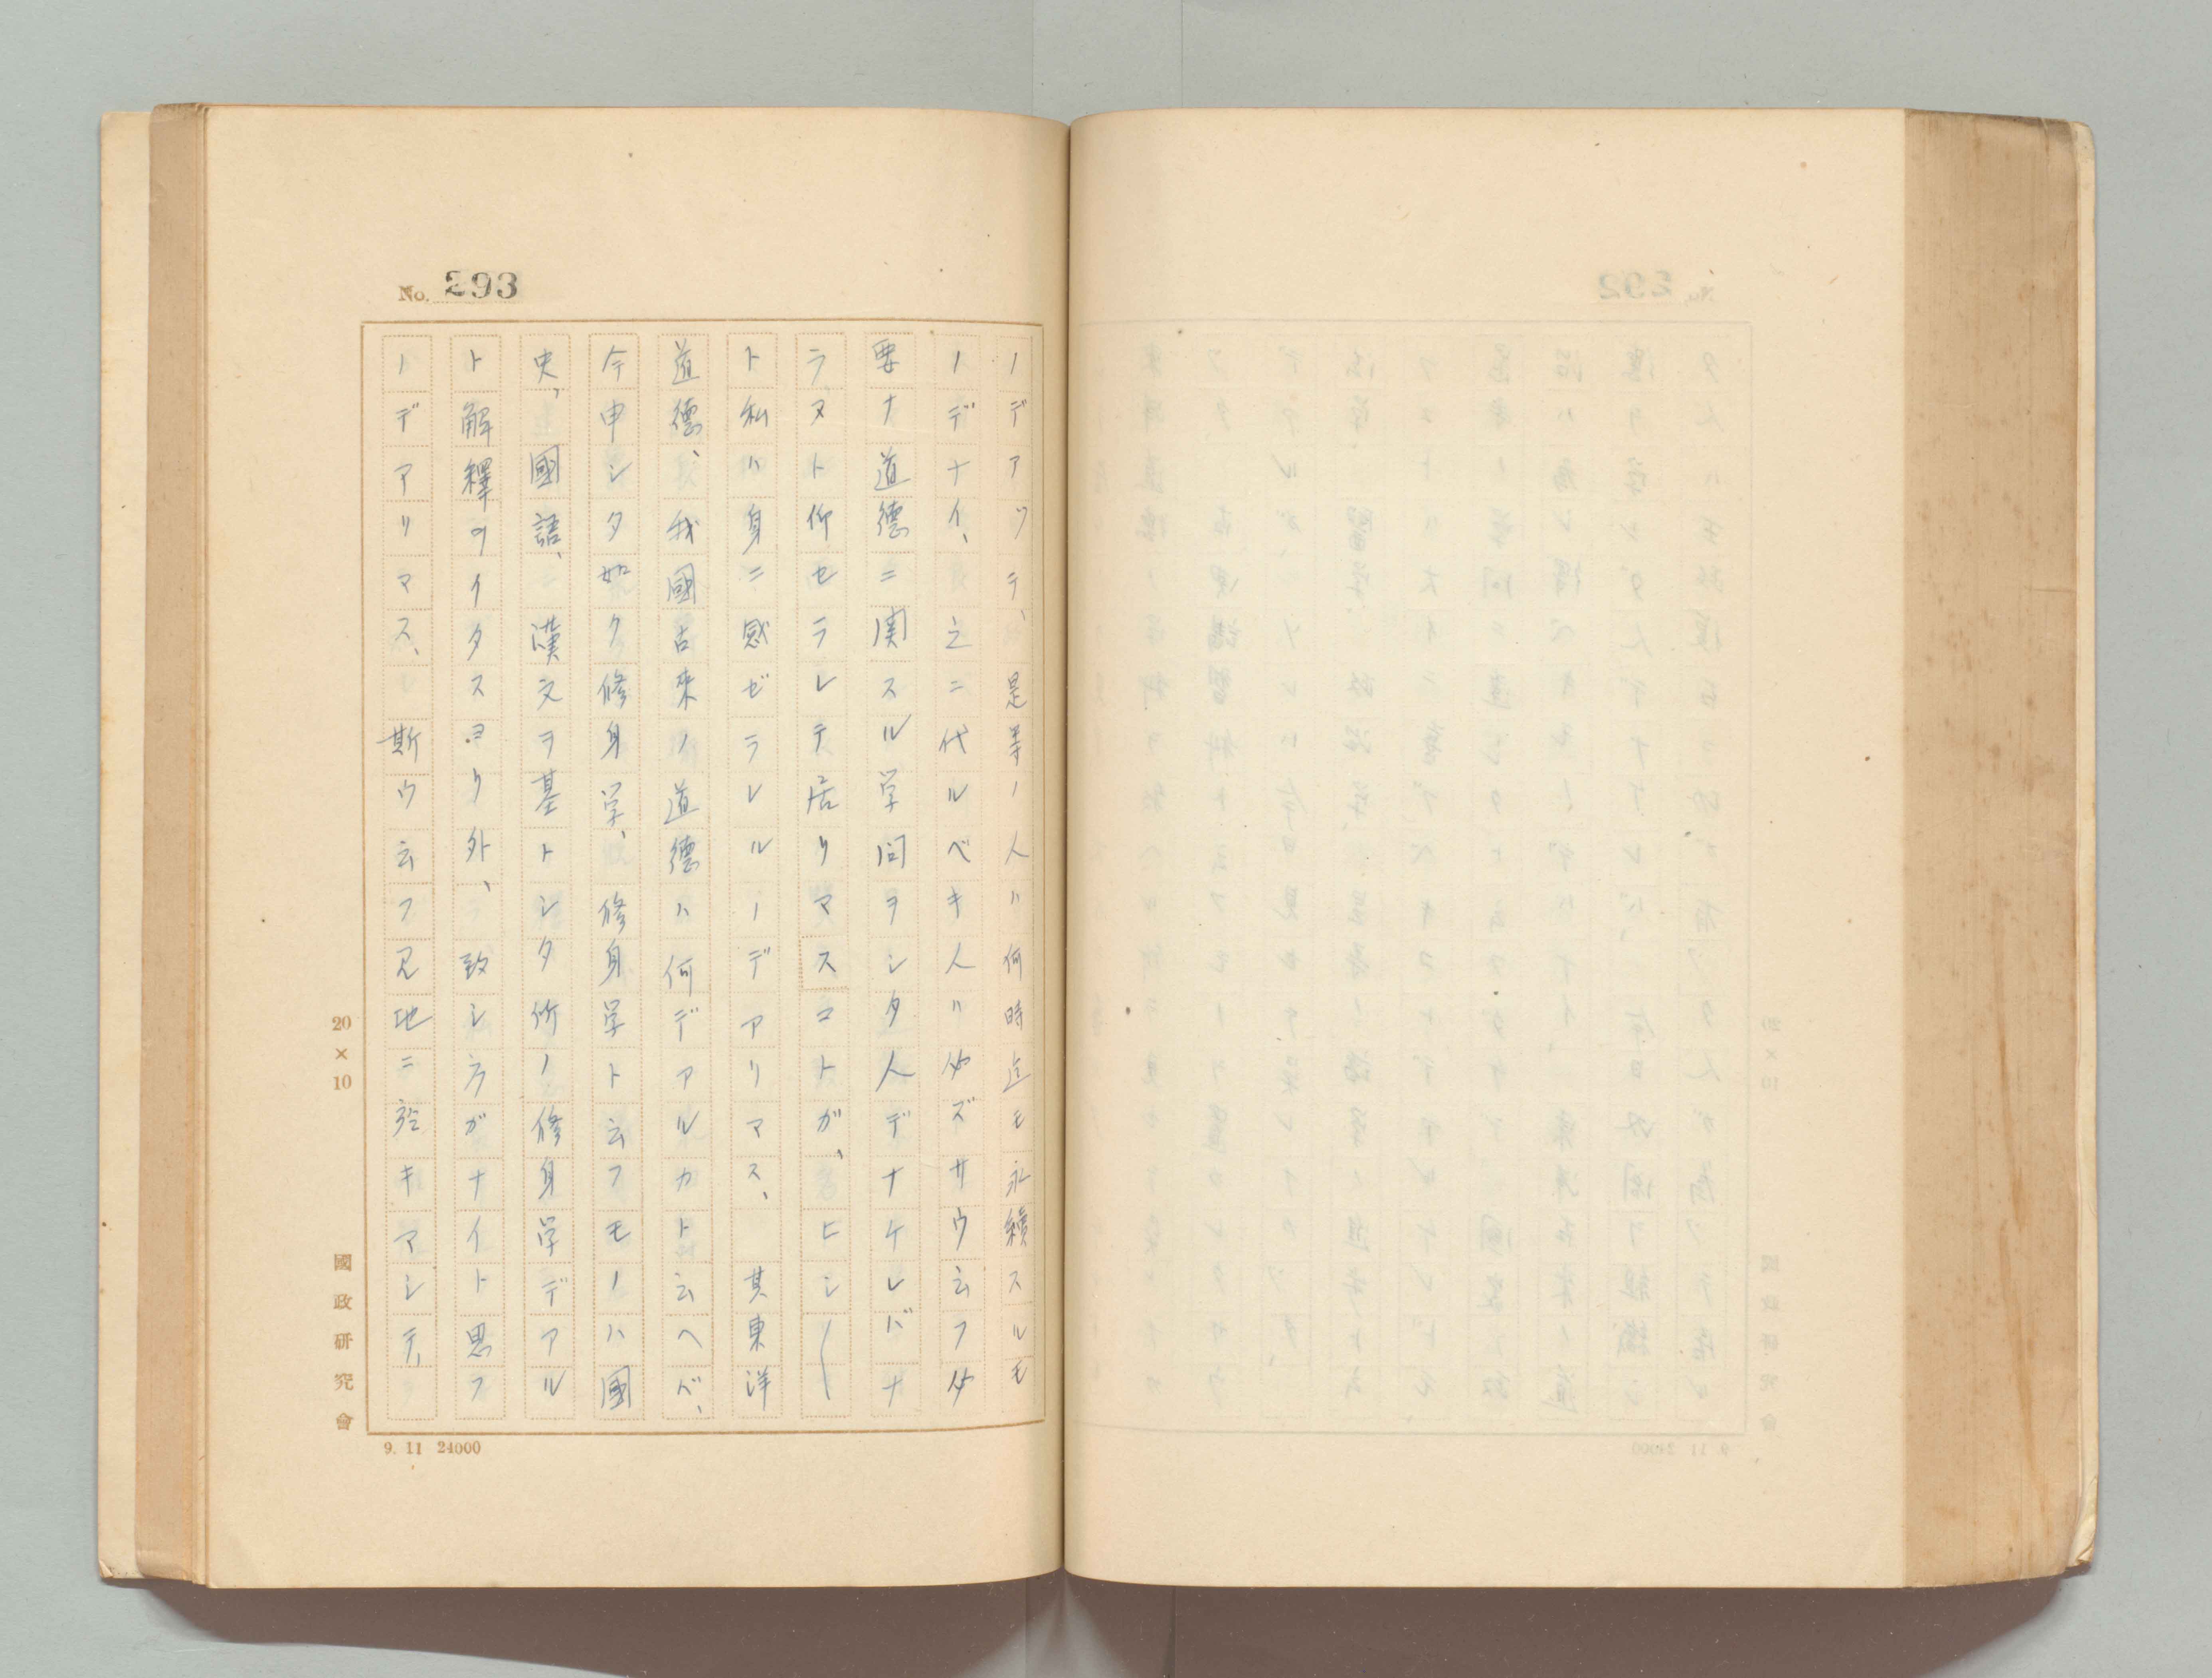 No. 293
ノデアツテ、是等ノ人ハ何時迄モ永續スルモ
ノデナイ、之ニ代ルベキ人ハ必ズサウ云フ必
要ナ道德ニ関スル学問ヲシタ人デナケレバナ
ラヌト仰セラレテ居リマスコトガ、ヒシ〳〵
ト私ハ身ニ感ゼラレルノデアリマス、其東洋
道德、我國古来ノ道德ハ何デアルカト云ヘバ、
今申シタ如ク修身学、修身学ト云フモノハ國
史、國語、漢文ヲ基トシタ所ノ修身学デアル
ト解釋イタスヨリ外、致シ方ガナイト思フ
ノデアリマス、斯ウ云フ見地ニ於キマシテ、
20×10
國政研究會
9. 11 24000